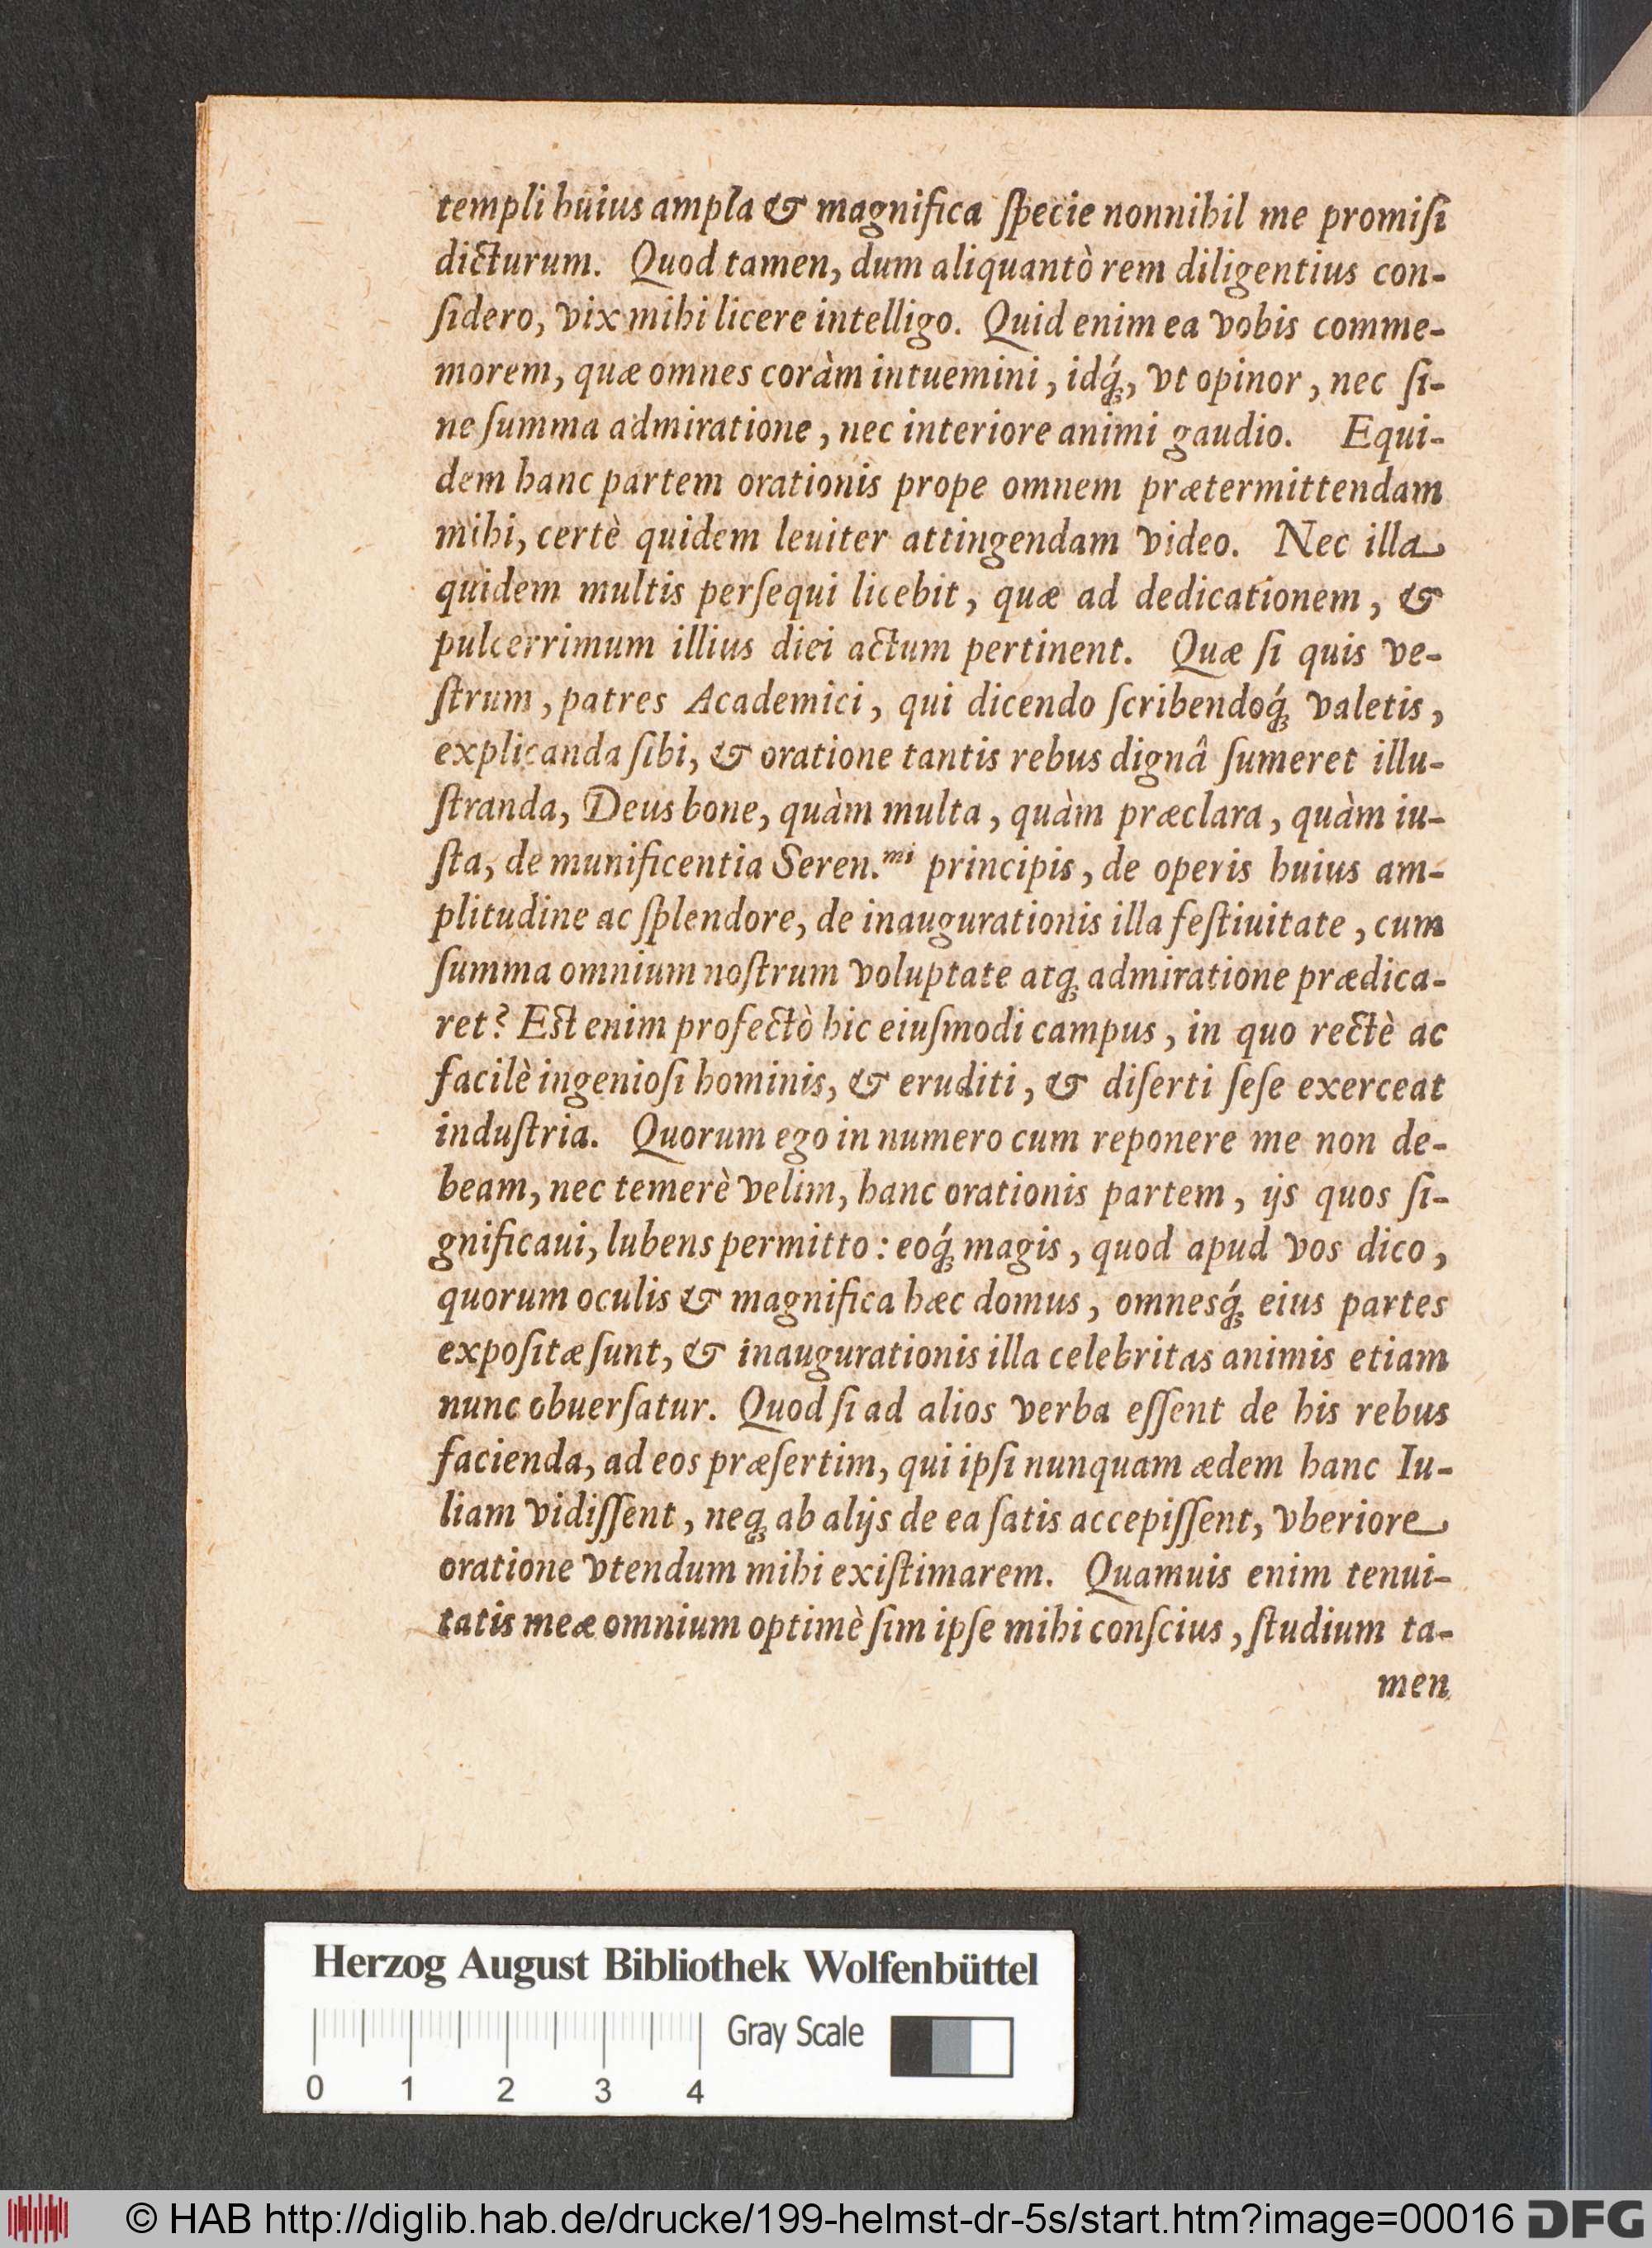 templi huius ampla & magnifica ſpecie nonnihil me promiſi
dicturum. Quod tamen, dum aliquantò rem diligentius con-
ſidero, vix mihi licere intelligo. Quid enim ea vobis comme-
morem, quæ omnes coràm intuemini, idq́;, vt opinor, nec ſi-
ne ſumma admiratione, nec interiore animi gaudio. Equi-
dem hanc partem orationis prope omnem prætermittendam
mihi, certè quidem leuiter attingendam video. Nec illa
quidem multis perſequi licebit, quæ ad dedicationem, &
pulcerrimum illius diei actum pertinent. Quæ ſi quis ve-
ſtrum, patres Academici, qui dicendo ſcribendoq́; valetis,
explicanda ſibi, & oratione tantis rebus dignâ ſumeret illu-
ſtranda, Deus bone, quàm multa, quàm præclara, quàm iu-
ſta, de munificentia Seren.mi principis, de operis huius am-
plitudine ac ſplendore, de inaugurationis illa feſtiuitate, cum
ſumma omnium noſtrum voluptate atq; admiratione prædica-
ret? Eſt enim profectò hic eiuſmodi campus, in quo rectè ac
facilè ingenioſi hominis, & eruditi, & diſerti ſeſe exerceat
induſtria. Quorum ego in numero cum reponere me non de-
beam, nec temerè velim, hanc orationis partem, ijs quos ſi-
gnificaui, lubens permitto: eoq́; magis, quod apud vos dico,
quorum oculis & magnifica hæc domus, omnesq́; eius partes
expoſitæ ſunt, & inaugurationis illa celebritas animis etiam
nunc obuerſatur. Quod ſi ad alios verba eſſent de his rebus
facienda, ad eos præſertim, qui ipſi nunquam ædem hanc Iu-
liam vidiſſent, neq; ab alijs de ea ſatis accepiſſent, vberiore
oratione vtendum mihi exiſtimarem. Quamuis enim tenui-
tatis meæ omnium optimè ſim ipſe mihi conſcius, ſtudium ta-
men
Herzog August Bibliothek Wolfenbüttel
Gray Scale
0 1 2 3 4
© HAB http://diglib.hab.de/drucke/199-helmst-dr-5s/start.htm?image=00016 DFG